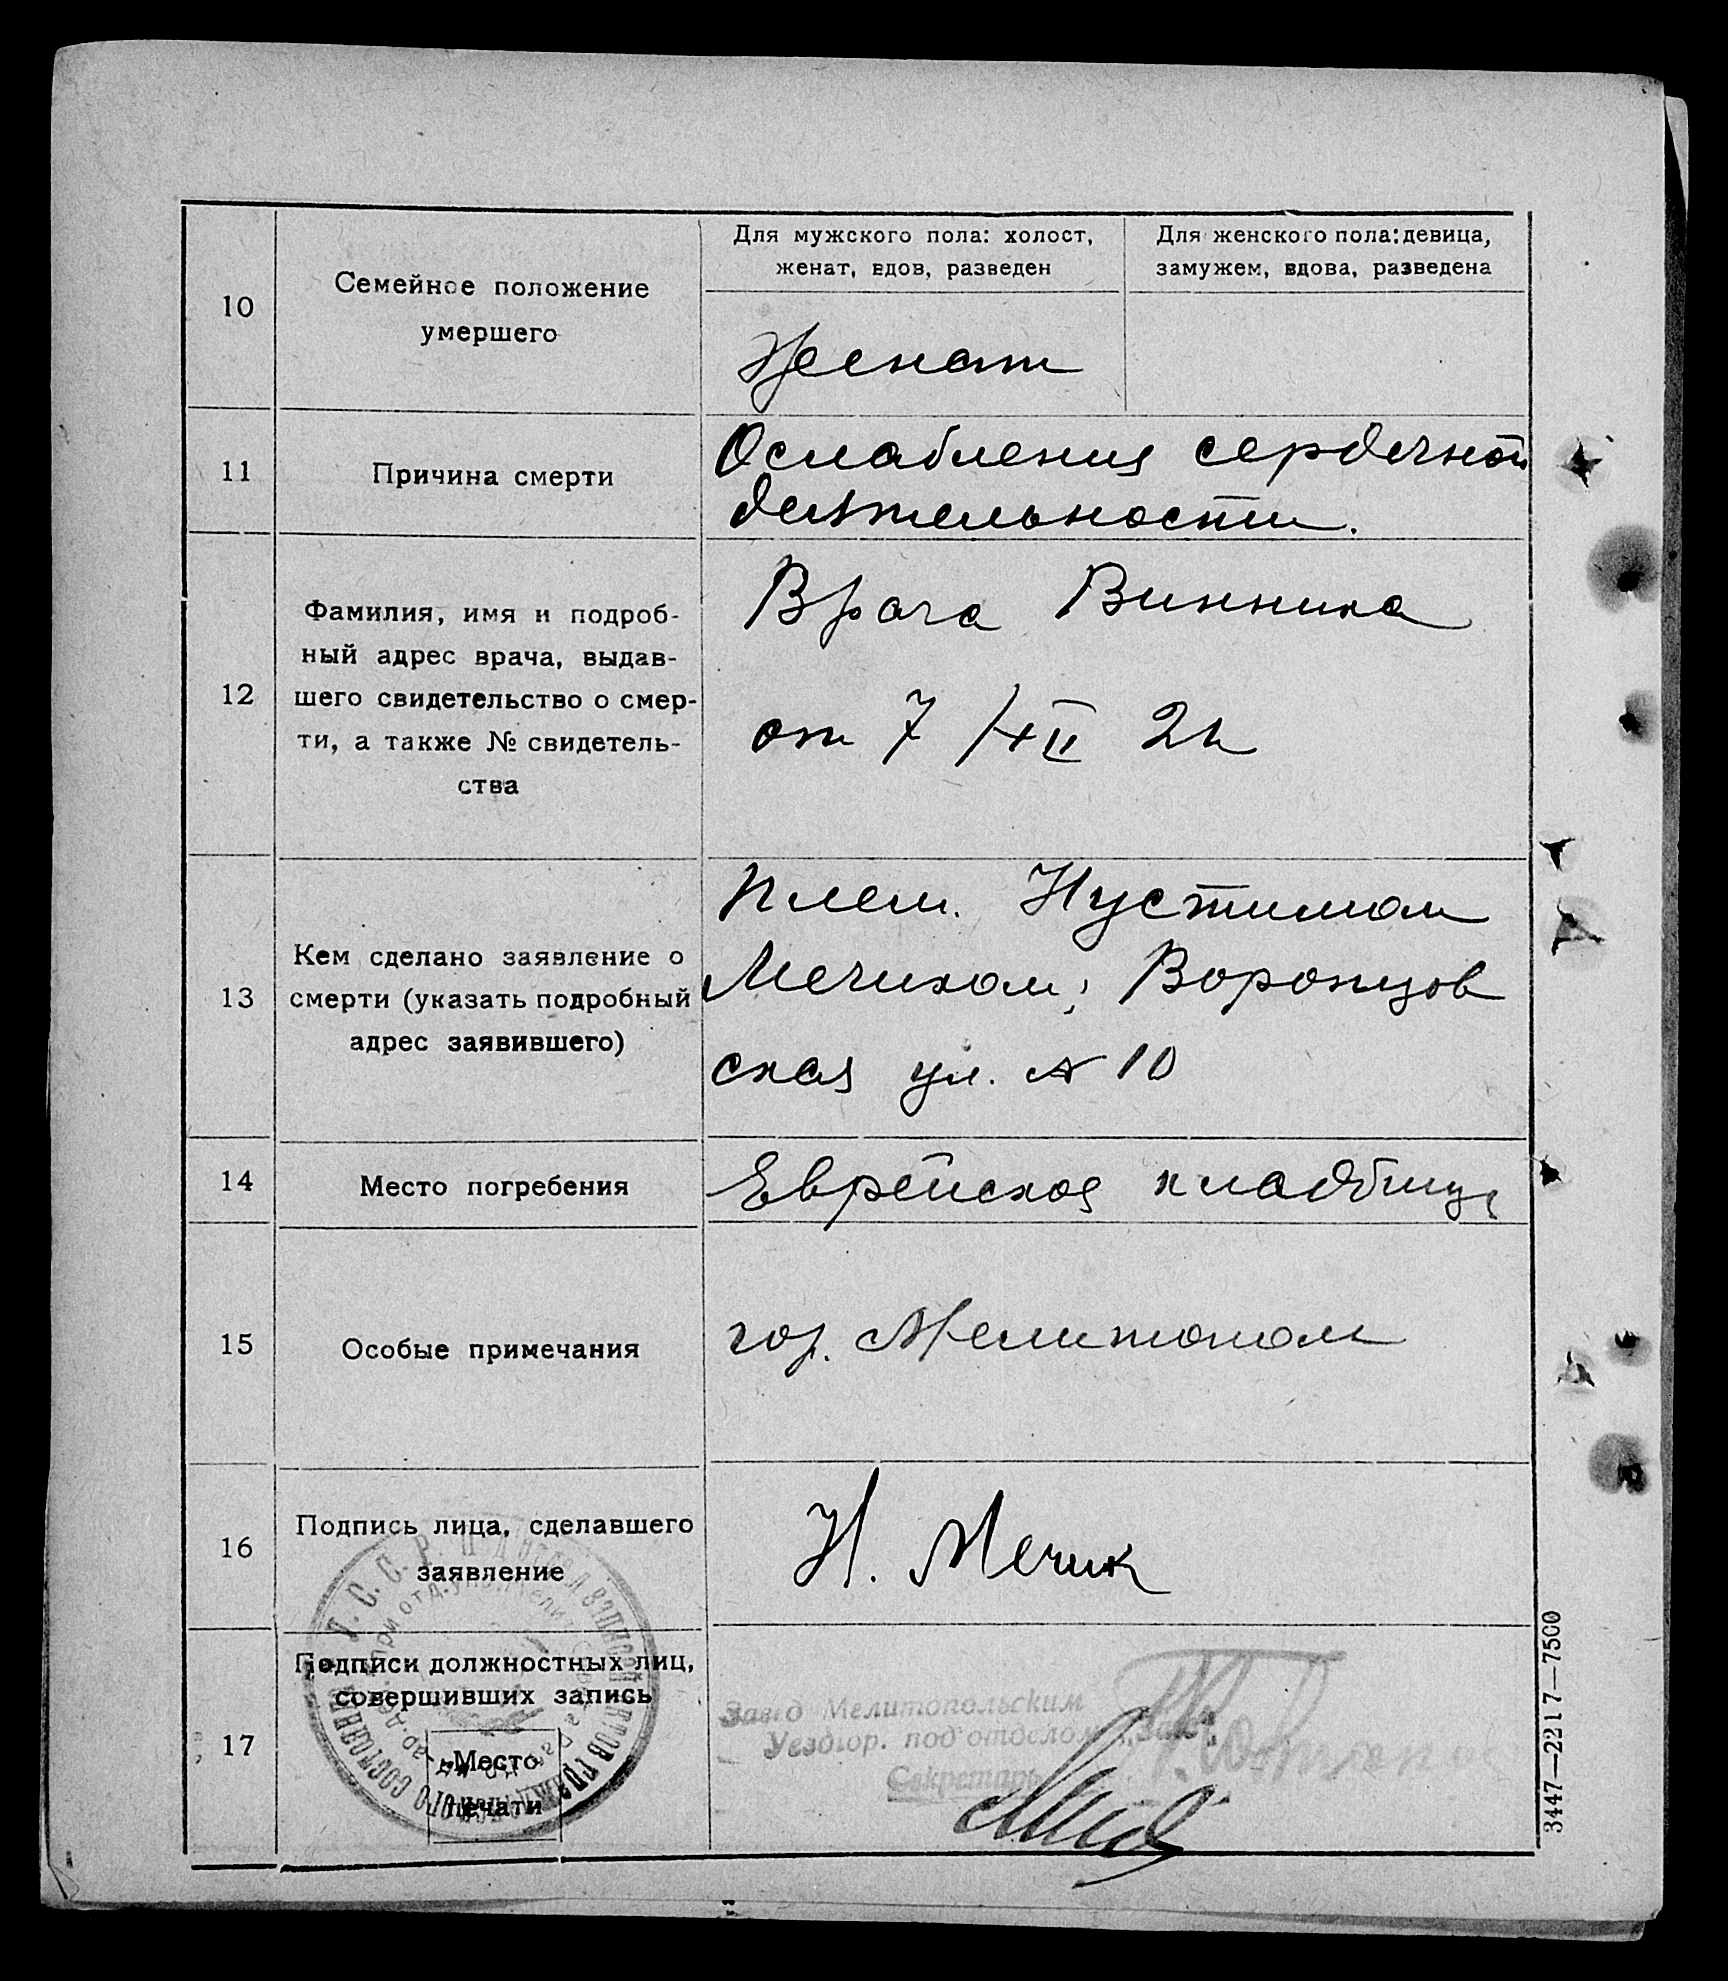 10
Семейное положение
умершего
Для мужского пола: холост,
женат, вдов, разведен
Для женского пола: девица,
замужем, вдова, разведена
Женат
11
Причина смерти
Ослабления сердечной
деятельности.
12
Фамилия, имя и подроб-
ный адрес врача, выдав-
шего свидетельство о смер-
ти, а также № свидетель-
ства
Врача Винника
от 7/XII 2
13
Кем сделано заявление о
смерти (указать подробный
адрес заявившего)
Плем.
Мечиком; Воронцов
ская ул. № 10
14
Место погребения
Еврейское кладбище
15
Особые примечания
гор. Мелитополь
16
Подпись лица, сделавшего
заявление
Н. Мечик
17
Подписи должностных лиц,
совершивших запись
Место
печати
Завгд Мелитопольским
Уездгор. под'отделом „Загс"
Секретарь
3447—2217—7500